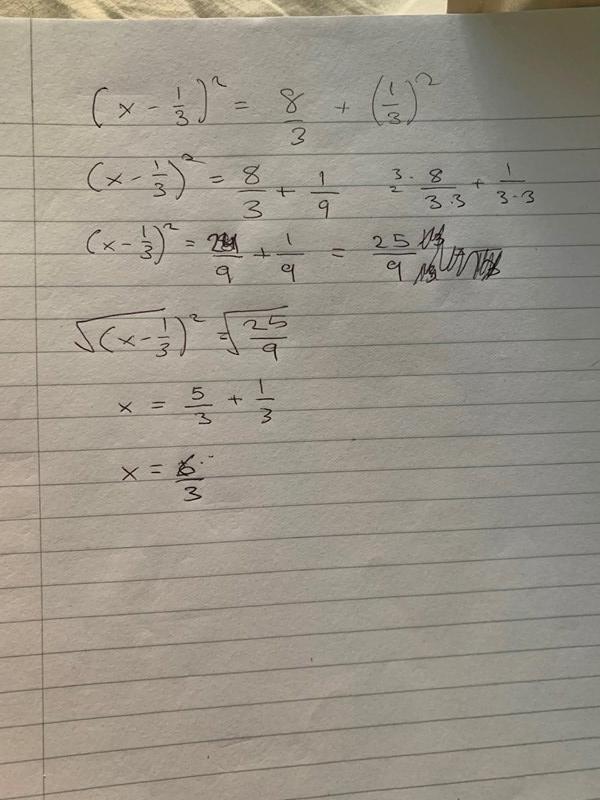 (x - 1/3)² = 8/3 + (1/3)²
(x - 1/3)² = 8/3 + 1/9 3·8/3·3 + 1/3·3
(x - 1/3)² = 24/9 + 1/9 = 25/9
√(x - 1/3)² = √25/9
x = 5/3 + 1/3
x = 6/3